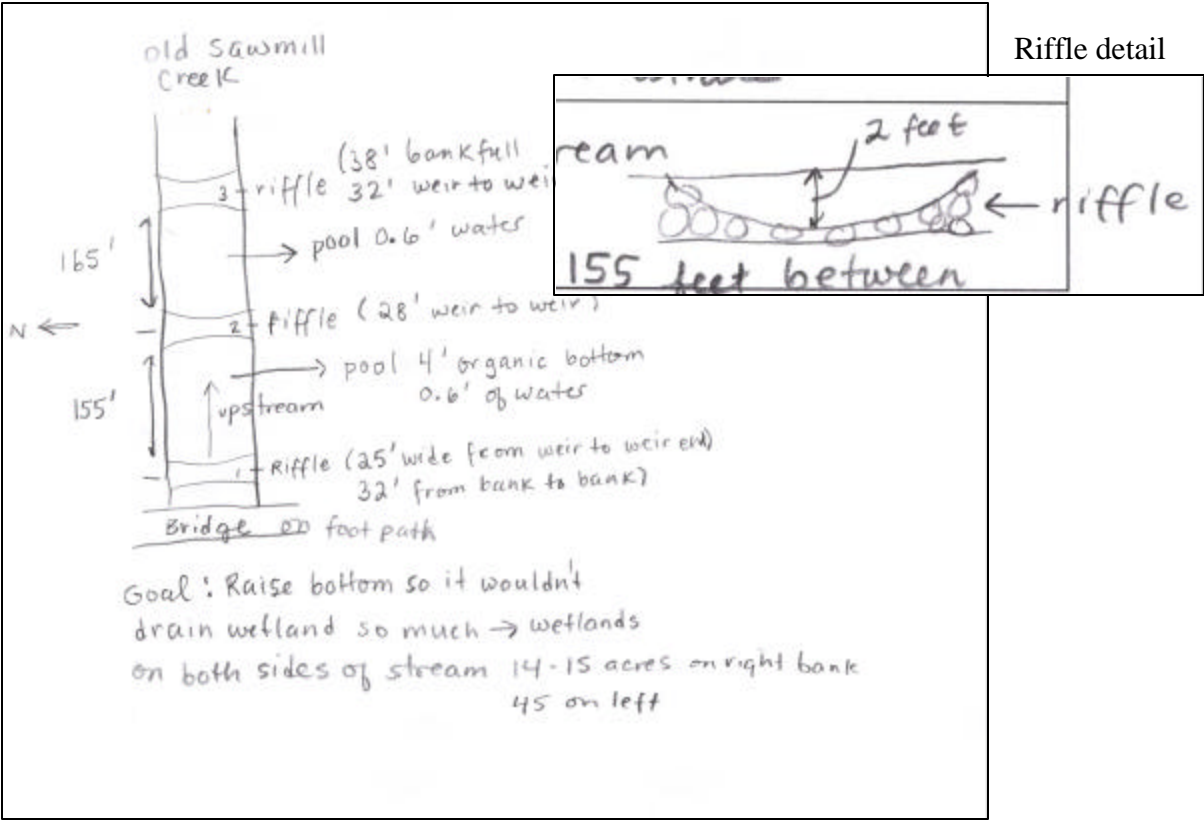 old Sawmill
Creek
Riffle detail
2 feet
ream
riffle
155 feet between
3 riffle (38' bankfull
32' weir to wei
165'
pool 0.6' water
N
2 Riffle (28' weir to weir)
pool 4' organic bottom
0.6' of water
155'
upstream
1 Riffle (25' wide from weir to weir end)
32' from bank to bank)
Bridge on foot path
Goal: Raise bottom so it wouldn't
drain wetland so much → wetlands
on both sides of stream 14-15 acres on right bank
45 on left